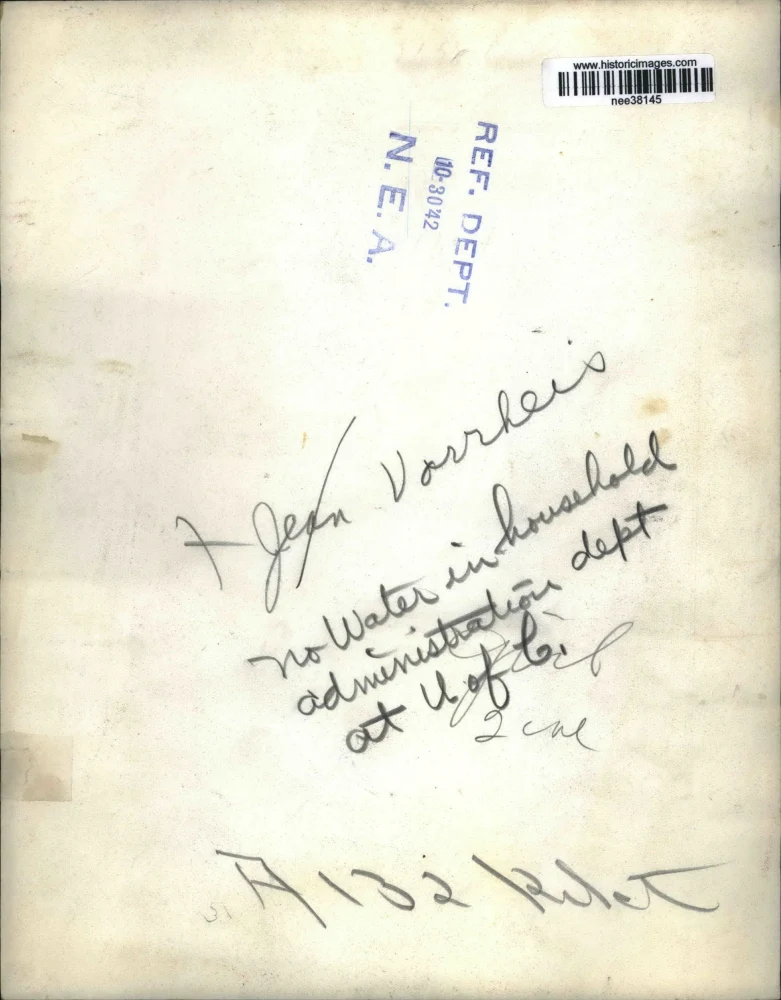 www.historicimages.com
nee38145
REF. DEPT.
10-30 42
N. E. A.
Jean Vorrheis
no Water in household
administration dept
at U of C.
A132